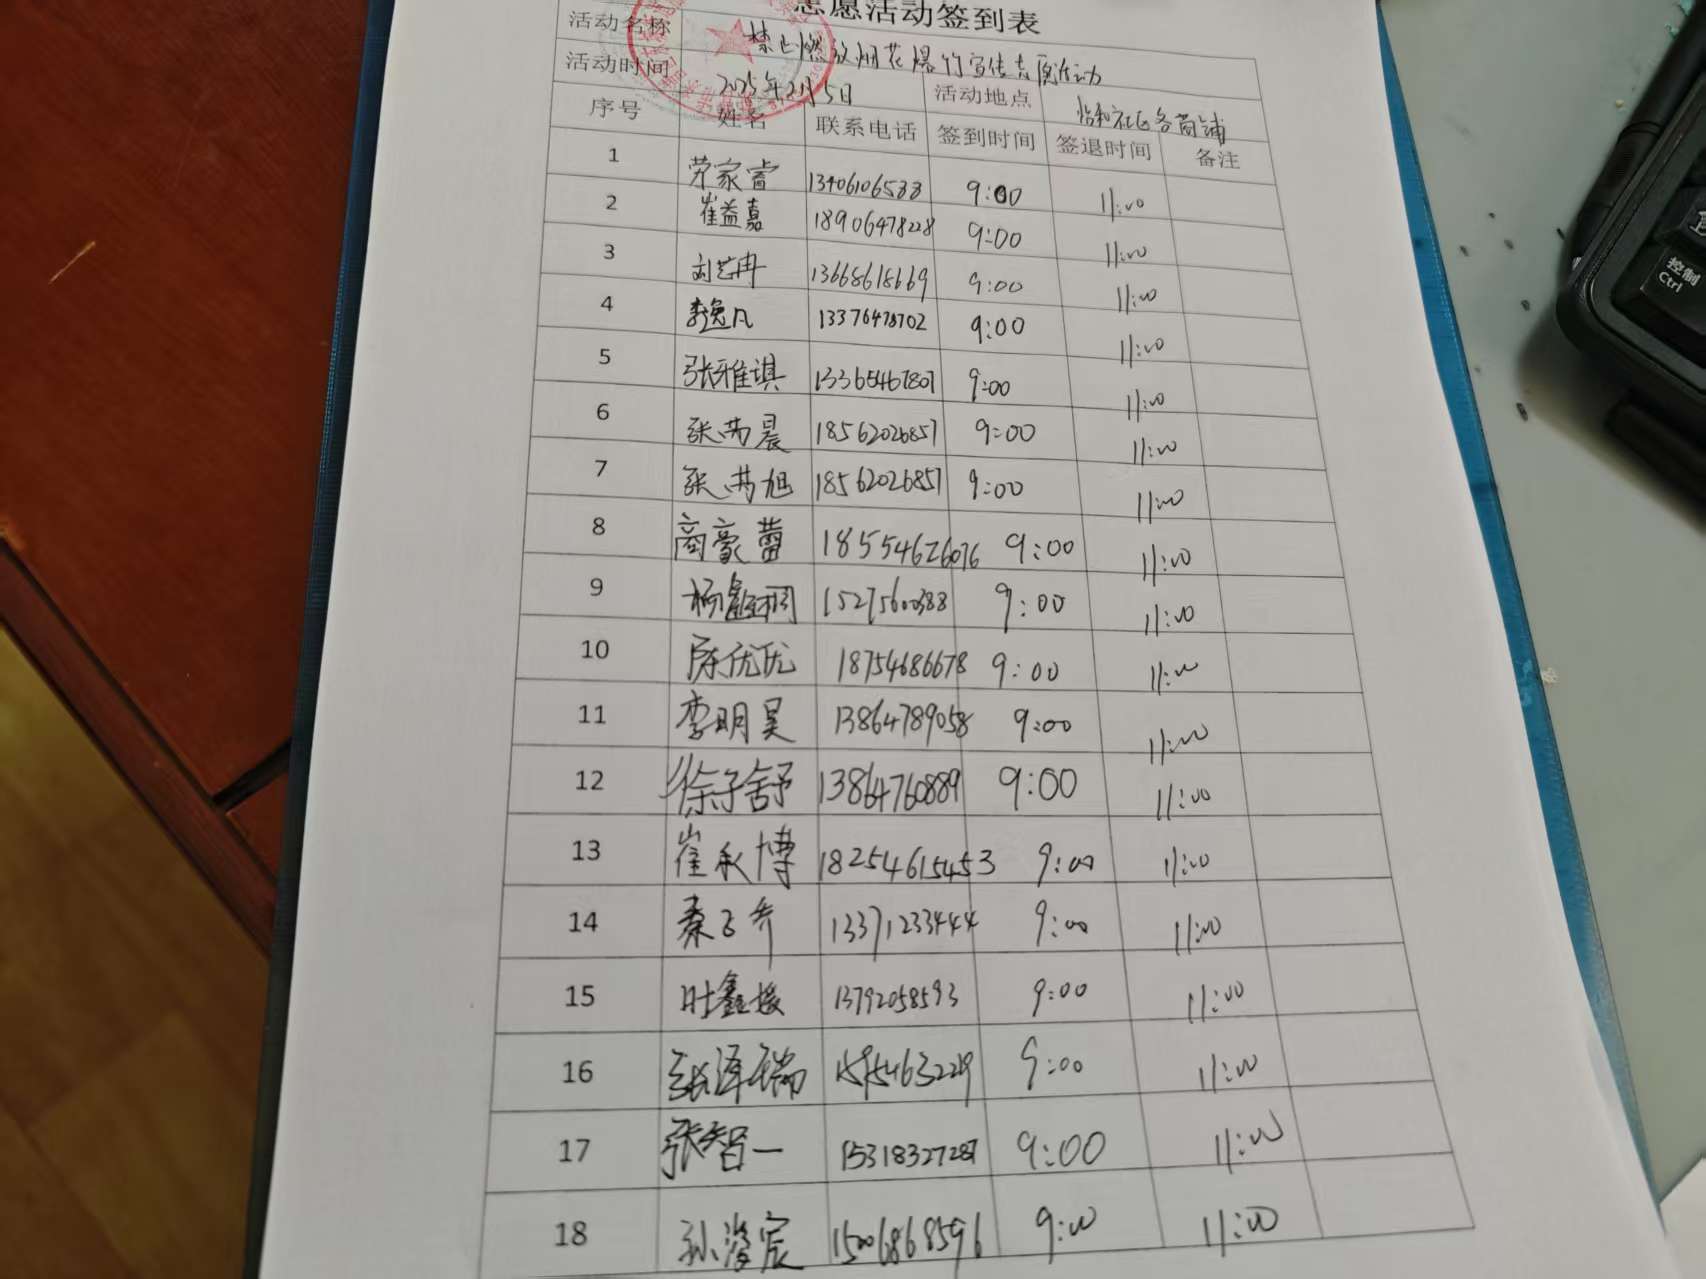 志愿活动签到表
活动名称 禁止燃放烟花爆竹宣传志愿活动
活动时间 2025年2月5日 活动地点 怡和社区各商铺
序号 姓名 联系电话 签到时间 签退时间 备注
1 劳家睿 13406106588 9:00 11:00
2 崔益嘉 18906478228 9:00 11:00
3 刘艺冉 13668618669 9:00 11:00
4 李逸凡 13376478702 9:00 11:00
5 张雅琪 13365467807 9:00 11:00
6 张芮晨 18562026857 9:00 11:00
7 张芮旭 18562026857 9:00 11:00
8 商豪蕾 18554626076 9:00 11:00
9 杨鑫桐 15275600388 9:00 11:00
10 陈优优 18754686678 9:00 11:00
11 李明昊 13864789058 9:00 11:00
12 徐子舒 13864760889 9:00 11:00
13 崔永博 18254615453 9:00 11:00
14 秦子乔 13371233444 9:00 11:00
15 时鑫媛 13792058593 9:00 11:00
16 张泽瑞 1595463229 9:00 11:00
17 张智一 15318327287 9:00 11:00
18 孙浚宸 15006868596 9:00 11:00
控制
Ctrl